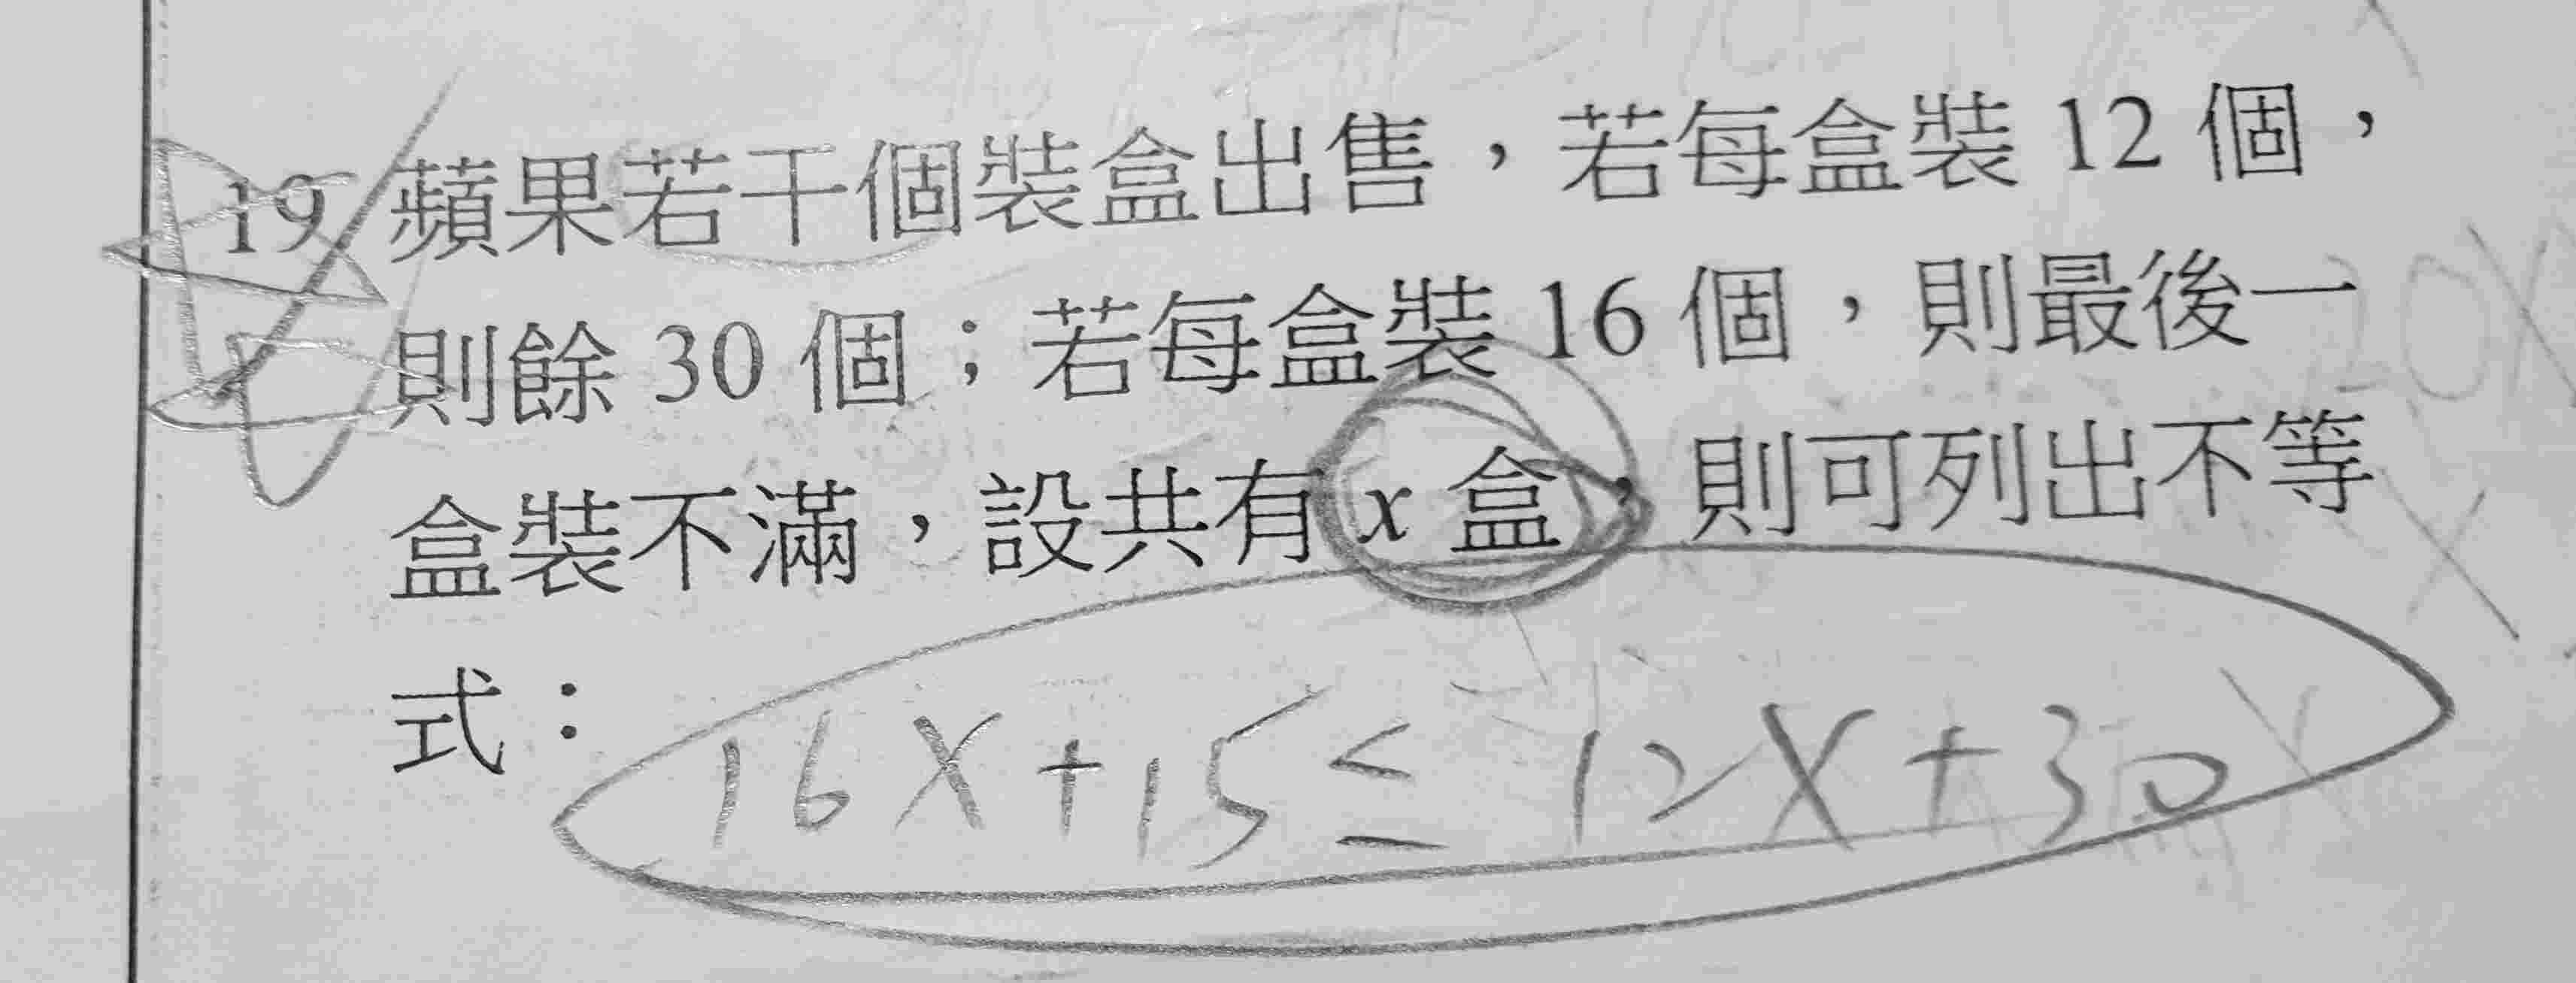 19. 蘋果若干個裝盒出售，若每盒裝 12 個，
則餘 30 個；若每盒裝 16 個，則最後一
盒裝不滿，設共有 x 盒，則可列出不等
式：16X+15≤12X+30